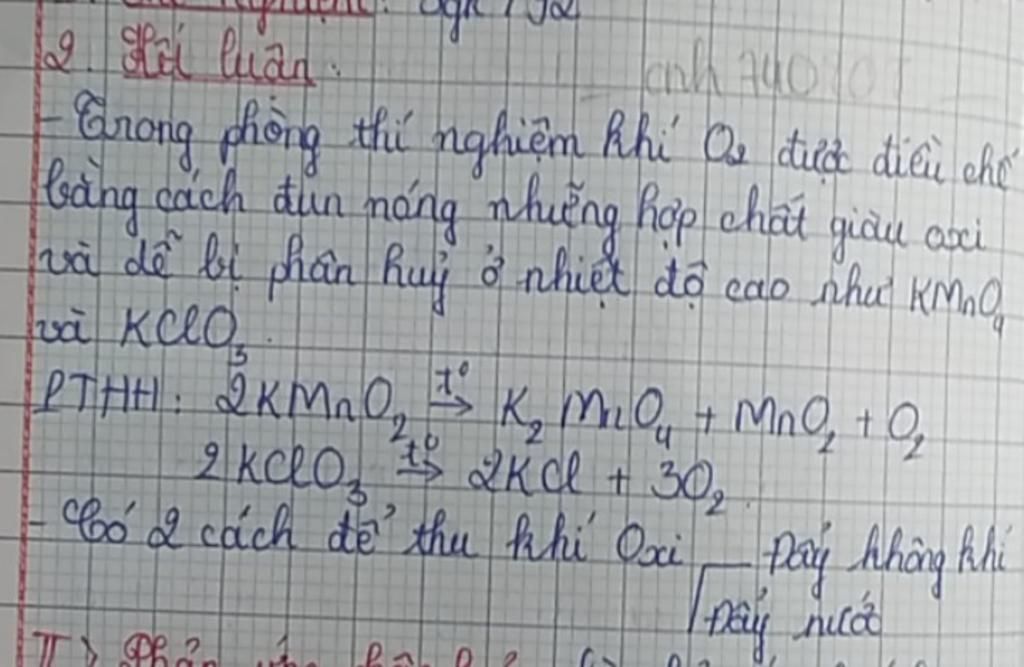 Nghiệm: Sgk / 92
2. Kết luận:
- Trong phòng thí nghiệm khí O2 được điều chế
bằng cách đun nóng những hợp chất giàu oxi
và dễ bị phân huỷ ở nhiệt độ cao như KMnO4
và KClO3.
PTHH: 2KMnO2 t°→ K2MnO4 + MnO2 + O2
2KClO3 t°→ 2KCl + 3O2
- Có 2 cách để thu khí Oxi Đẩy không khí
Đẩy nước
II) Phản ứng